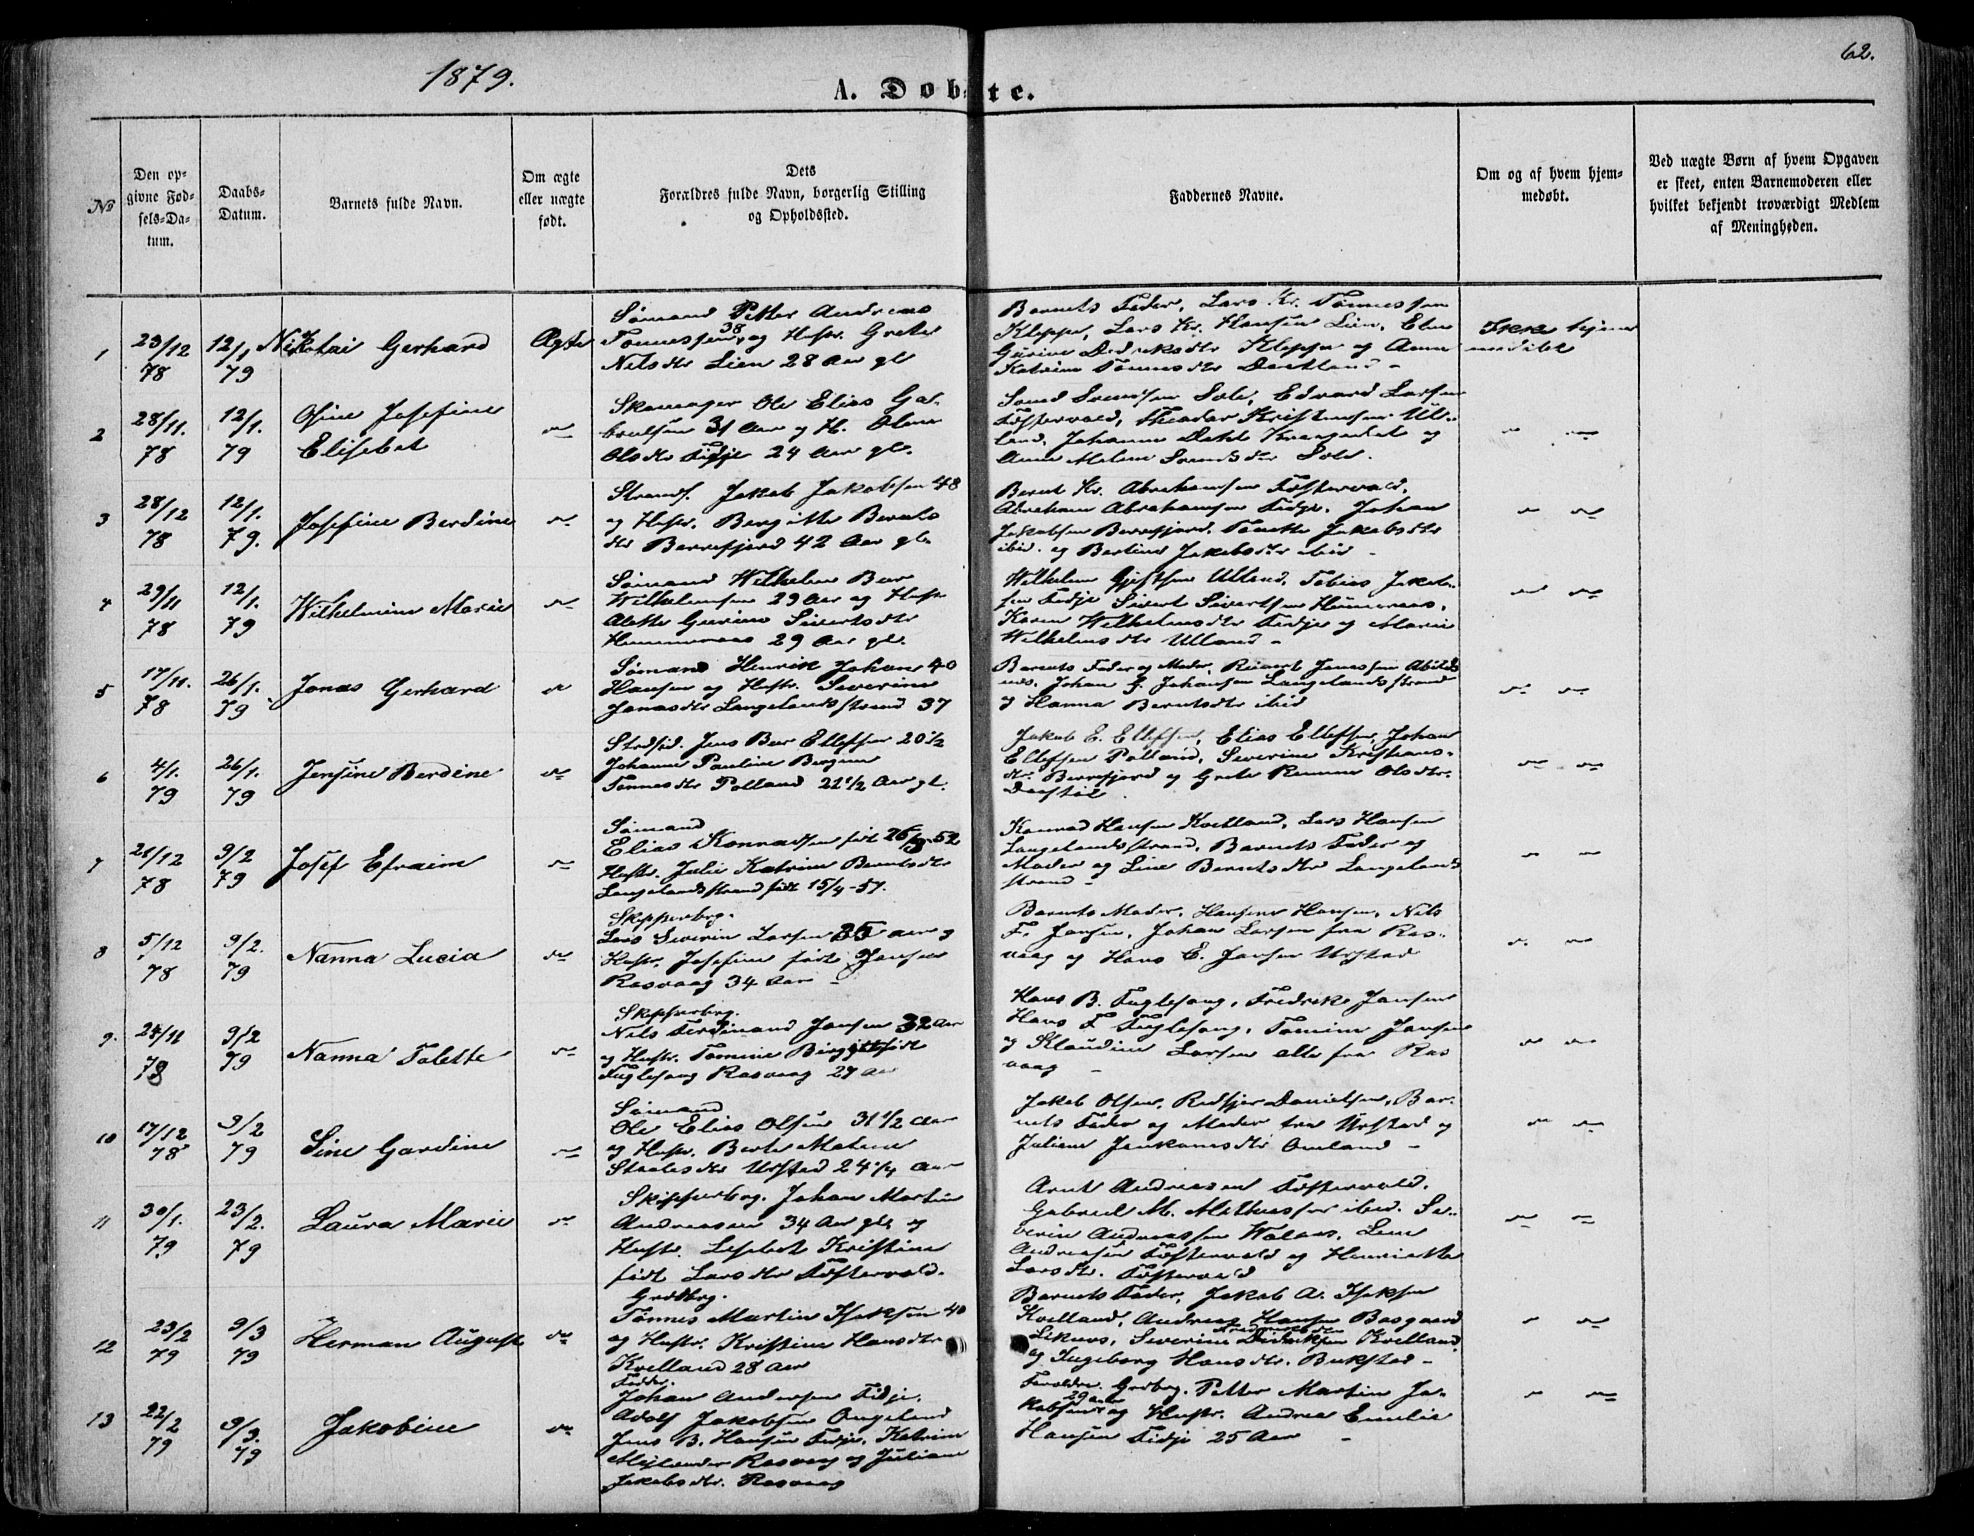 1879.
A. Døbte.
62.
№
Den opgivne Fødsels-Datum.
Daabs-Datum.
Barnets fulde Navn.
Om ægte eller uægte født.
Dets Forældres fulde Navn, borgerlig Stilling og Opholdssted.
Faddernes Navne.
Om og af hvem hjemmedøbt.
Ved uægte Børn af hvem Opgaven er skeet, enten Barnemoderen eller hvilket bekjendt troværdigt Medlem af Meningheden.
1
23/12 78
12/1 79
Nikolai Gerhard
Ægte
Sømand Petter Andreas
Tønnessen 38, og Hustr. Grete
Nilsdtr Lien 28 Aar gl
Barnets Fader, Lars Kr. Tønnessen
Kleppe, Lars Kr. Hansen Lien, Elen
Gurine Didriksdtr Kleppe og Anne
Katrine Tønnesdtr
Ikke hjemmedøbt
2
28/11. 78
12/1. 79
Osine Josefine
Elisebet
Skomager Ole Elias Gabrielsen
31 Aar og H. Olene
Olsdtr Fidje 24 Aar gl.
Svend Svendsen Sole, Edvard Larsen
Føstervold, Theodor Kristensen Ulland,
Johanne Dahl og
Anne Malene Svendsdtr Sole.
3
28/12 78
12/1. 79.
Josefine Berdine
Strands. Jakob Jakobsen 48
og Hustr. Bergitte Berntsdtr
Berrefjord 42 Aar gl.
Bernt Kr. Abrahamsen Føstervold,
Abraham Abrahamsen Fidje, Johan
Jakobsen Berrefjord, Tønette Jakobsdtr
ibid. og Bertine Jakobsdtr ibid
4
29/11 78
12/1. 79
Wilhelmine Marie
Sømand Wilhelm Ber
Wilhelmsen 29 Aar og Hustr
Alette Gurine Sivertsdtr
29 Aar gl.
Wilhelm Ulland, Tobias Jakobsen
Fidje Sivert Sivertsen
Karen Wilhelmsdtr Fidje og Marie
Wilhelmsdtr Ulland
5
17/11. 78
26/1. 79
Jonas Gerhard
Sømand Henrik Johan 40
Hansen og Hustr. Severine
Jonasdtr Langelandsstrand 37
Barnets Fader og Moder,
Johan Johansen Langelandsstrand
og Hanna Berntsdtr ibid
6
4/1. 79
26/1. 79
Jensine Berdine
Jens Ber Ellefsen 20 1/2
Johanne Pauline Bergine
Tønnesdtr Polland 21 1/2 Aar gl.
Jakob E. Ellefsen, Elias Ellefsen, Johan
Ellefsen Polland, Severine Kristiansdtr.
Berrefjord og Grete Olsdtr.
7
21/12 78
9/2 79
Josef Efraim
Sømand
Elias Konradsen født 26/9-52
Hustr. Julie Katrine Berntsdtr
Langelandsstrand født 15/4-57.
Konrad Hansen Kvelland, Lars Hansen
Langelandsstrand, Barnets Fader og
Moder og Line Berntsdtr Langelandsstrand
8
5/12 78
9/2. 79
Nanna Lucia
Skipperbrg.
Lars Severin Larsen 35 Aar og
Hustr. Josefine født Jansen
Rasvaag 34 Aar
Barnets Moder, Hansine Hansen, Nils
F. Jansen, Johan Larsen fra Rasvaag
og Hans E. Jansen Urstad
9.
24/11 78
9/2 79
Nanna Tolette
Skipperbrg.
Nils Ferdinand Jansen 32 Aar
og Hustr. Tomine Birgitte født
Fuglesang Rasvaag 27 Aar
Hans B. Fuglesang, Fredrik Jansen
Hans F Fuglesang, Tomine Jansen
og Klaudine Larsen alle fra Rasvaag
10
17/12 78
9/2 79
Sine Gardine
Sømand
Ole Elias Olsen 31 1/2 Aar
og Hustr. Berte Malene
Staalesdtr Urstad 24 1/4 Aar
Jakob Olsen, Danielsen, Barnets
Fader og Moder fra Urstad og
Juliane Omland
11
30/1. 79
23/2. 79
Laura Marie
Skipperbrg. Johan Martin
Andreasen 34 Aar gl. og
Hustr. Lisebet Kristine
født Larsdtr Føstervold.
Arnt Andreasen Føstervold,
Gabriel M. Mathiassen ibid. Severin
Andreassen, Lene
Andreasen Føstervold og Henriette
Larsdtr. Føstervold
12
23/2 79
9/3 79
Herman August
Grdbrg.
Tønnes Martin Isaksen 40
og Hustr. Kristine Hansdtr
Kvelland 28 Aar
Barnets Fader, Jakob A. Isaksen
Kvelland, Andreas Hansen
Severine Kvelland
og Ingeborg Hansdtr. Bukstad
13
22/2 79
9/3. 79
Jakobine
Fadde.
Johan Andersen Fidje,
Adolf Jakobsen Ongeland
Jens B. Hansen Fidje, Katrine
Rasvaag og Juliane
Jakobsdtr. Rasvaag
Forældre. Grdbrg. Petter Martin Jakobsen
29 aar og Hustr. Andrea Emelie
Hansen Fidje 25 Aar